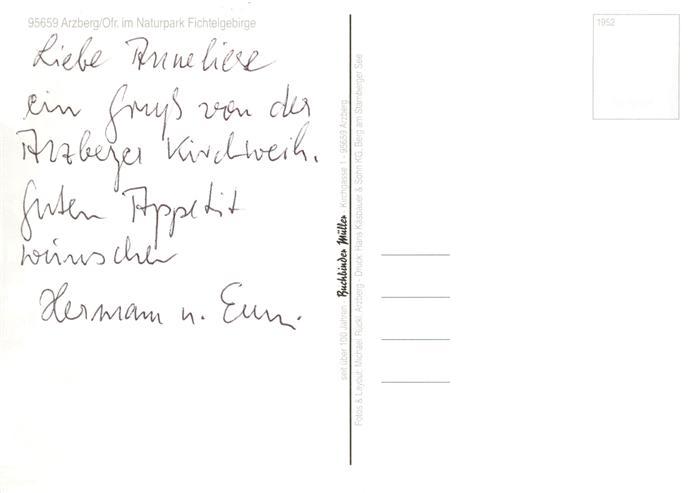 95659 Arzberg/Ofr. im Naturpark Fichtelgebirge
Liebe Anneliese
ein Gruß von der
Arzberger Kirchweih.
Guten Appetit
wünschen
Hermann u.
seit über 100 Jahren · Buchbinder Müller · Kirchgasse 1 · 95659 Arzberg
Fotos & Layout: Michael Rückl, Arzberg · Druck: Hans Käsbauer & Sohn KG, Berg am Starnberger See
1952